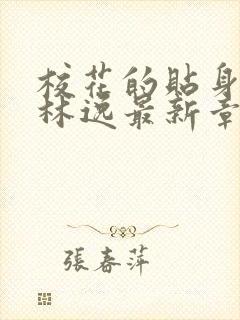 校花的貼身
林逸最新章
張春萍